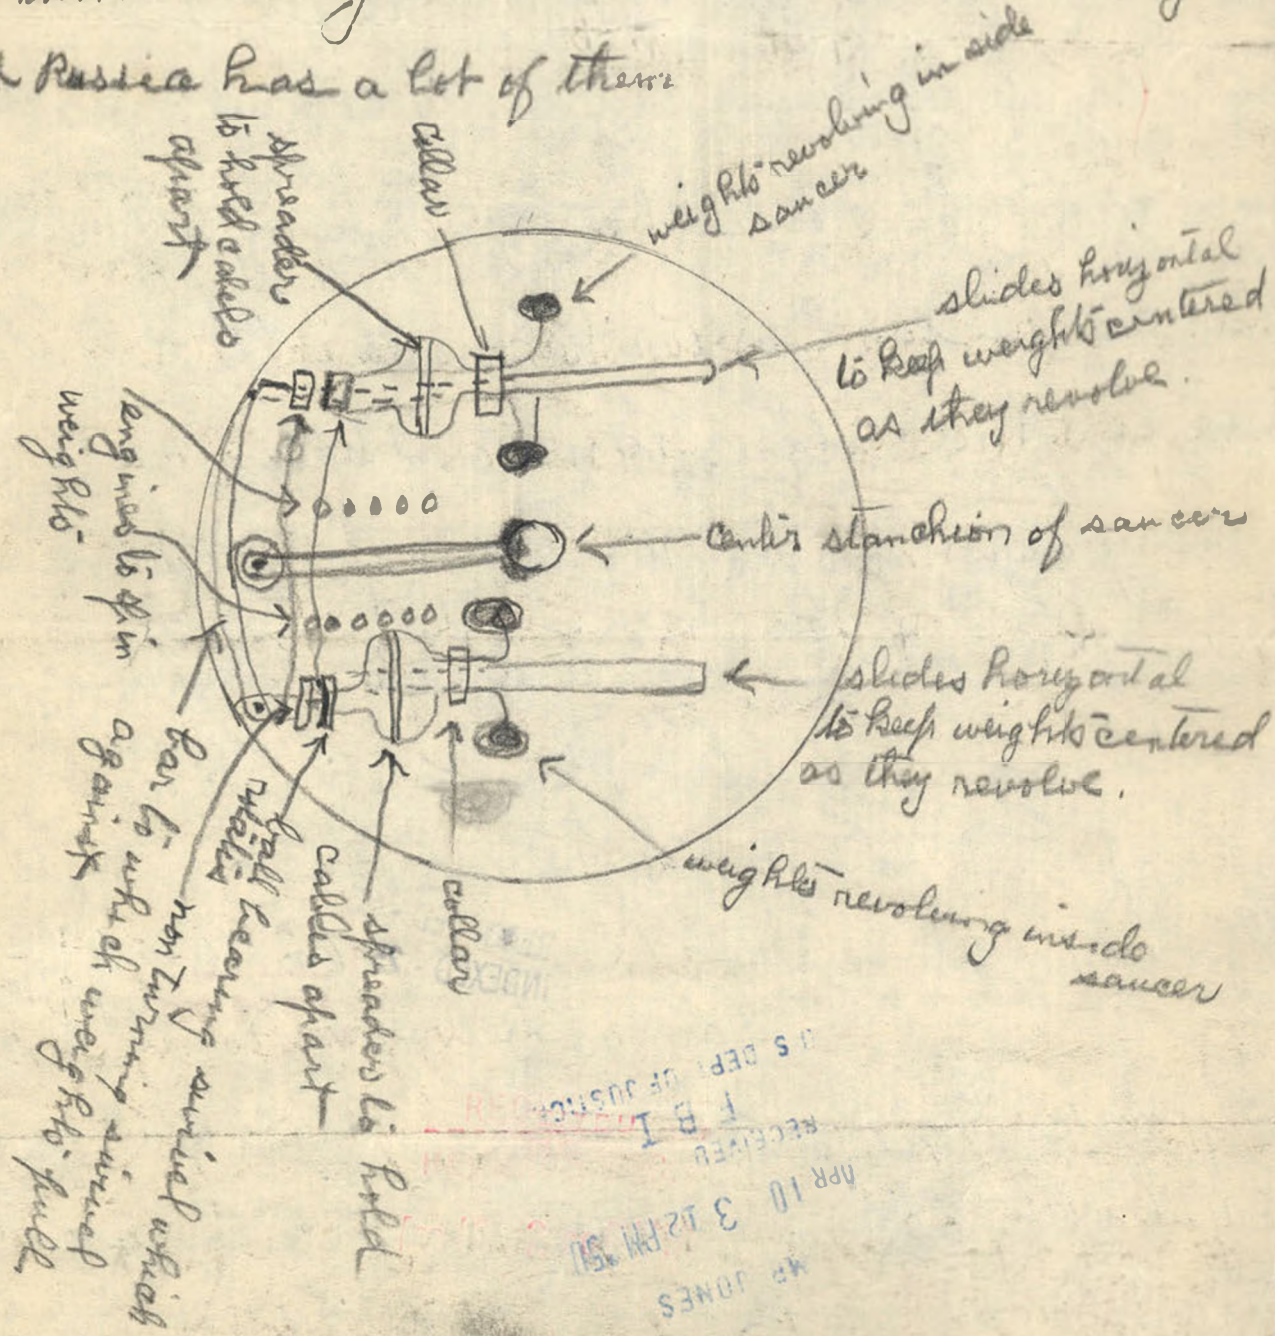 Russia has a lot of them
spreader
to hold cabels
apart
collar
weights revolving in side
saucer
slides horizontal
to keep weights centered
as they revolve.
engines to spin
weights
center stanchion of saucer
slides horizontal
to keep weights centered
as they revolve.
weights revolving inside
saucer
collar
spreaders to hold
cables apart
ball bearing swivel which
rotates
non turning swivel
bar to which weights pull
against
INDEXED
U S DEPT OF JUSTICE
F B I
RECEIVED
APR 10 3 12 PM
MR JONES